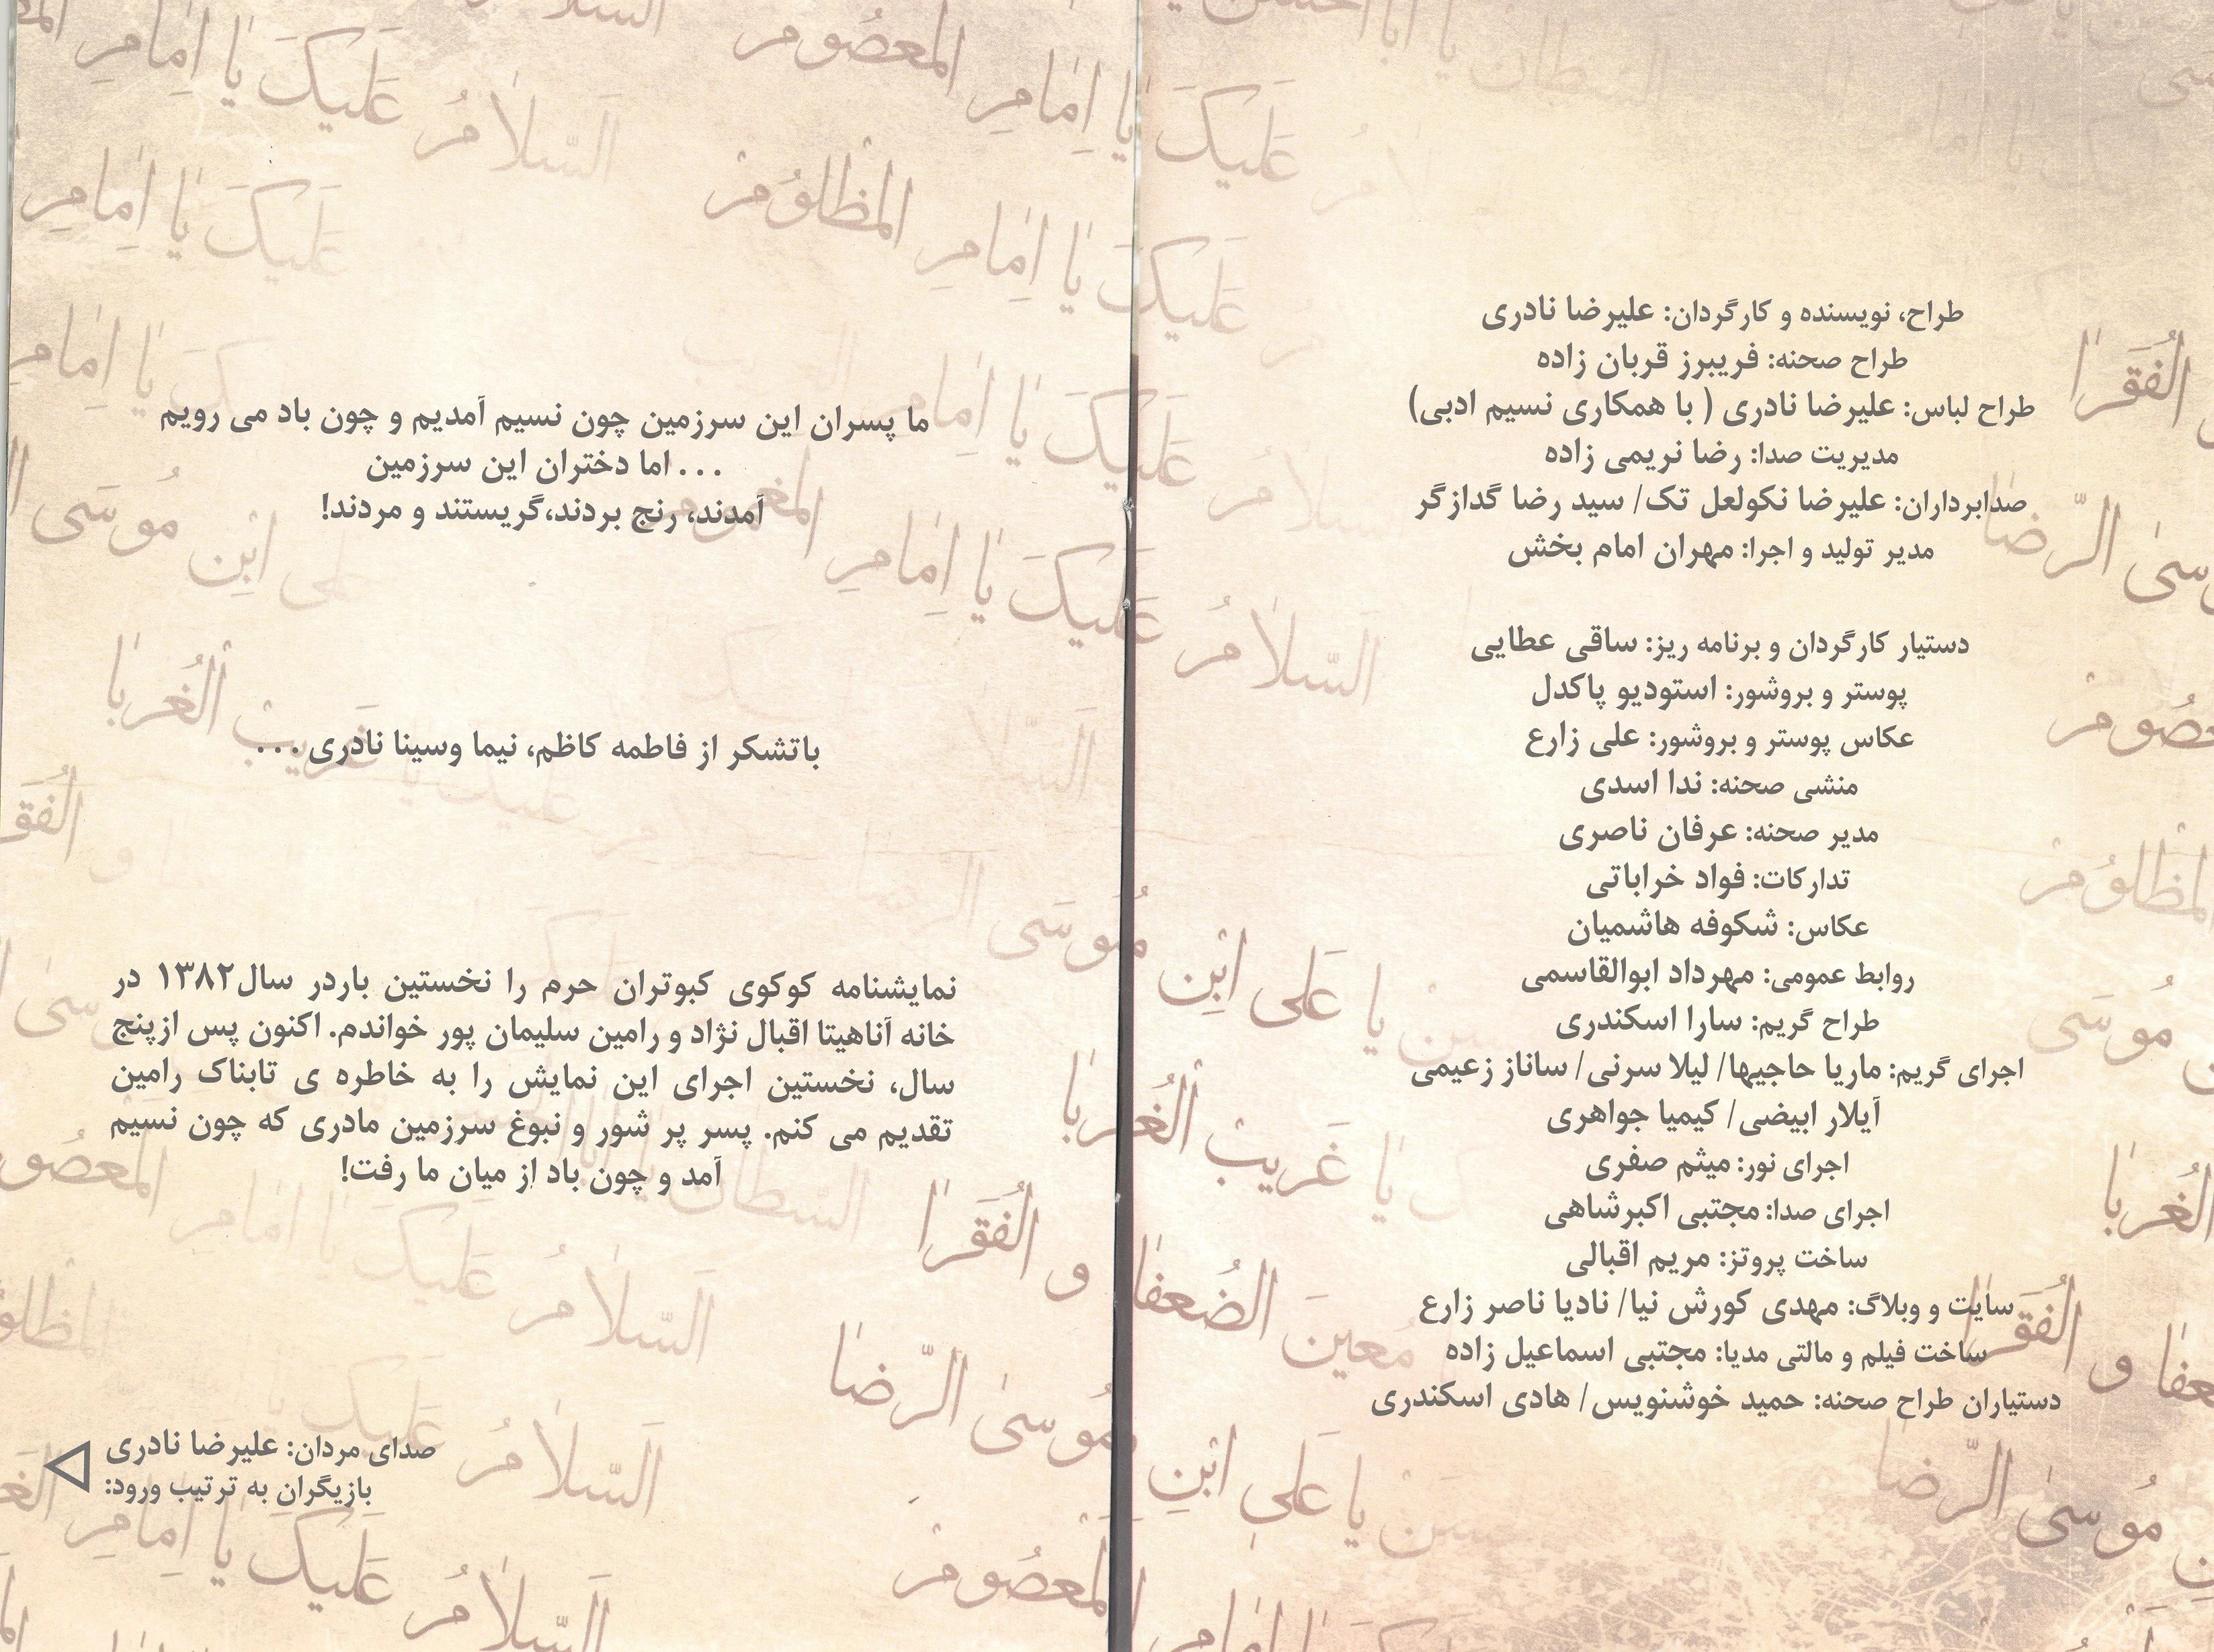 طراح، نویسنده و کارگردان: علیرضا نادری
طراح صحنه: فریبرز قربان زاده
طراح لباس: علیرضا نادری ( با همکاری نسیم ادبی)
مدیریت صدا: رضا نریمی زاده
صدابرداران: علیرضا نکولعل تک/ سید رضا گدازگر
مدیر تولید و اجرا: مهران امام بخش
دستیار کارگردان و برنامه ریز: ساقی عطایی
پوستر و بروشور: استودیو پاکدل
عکاس پوستر و بروشور: علی زارع
منشی صحنه: ندا اسدی
مدیر صحنه: عرفان ناصری
تدارکات: فواد خراباتی
عکاس: شکوفه هاشمیان
روابط عمومی: مهرداد ابوالقاسمی
طراح گریم: سارا اسکندری
اجرای گریم: ماریا حاجیها/ لیلا سرنی/ ساناز زعیمی
آیلار ابیضی/ کیمیا جواهری
اجرای نور: میثم صفری
اجرای صدا: مجتبی اکبرشاهی
ساخت پروتز: مریم اقبالی
سایت و وبلاگ: مهدی کورش نیا/ نادیا ناصر زارع
ساخت فیلم و مالتی مدیا: مجتبی اسماعیل زاده
دستیاران طراح صحنه: حمید خوشنویس/ هادی اسکندری
ما پسران این سرزمین چون نسیم آمدیم و چون باد می رویم
... اما دختران این سرزمین
آمدند، رنج بردند،گریستند و مردند!
باتشکر از فاطمه کاظم، نیما وسینا نادری...
نمایشنامه کوکوی کبوتران حرم را نخستین باردر سال۱۳۸۲ در
خانه آناهیتا اقبال نژاد و رامین سلیمان پور خواندم. اکنون پس ازپنج
سال، نخستین اجرای این نمایش را به خاطره ی تابناک رامین
تقدیم می کنم. پسر پر شور و نبوغ سرزمین مادری که چون نسیم
آمد و چون باد از میان ما رفت!
صدای مردان: علیرضا نادری
بازیگرانِ به ترتیب ورود: